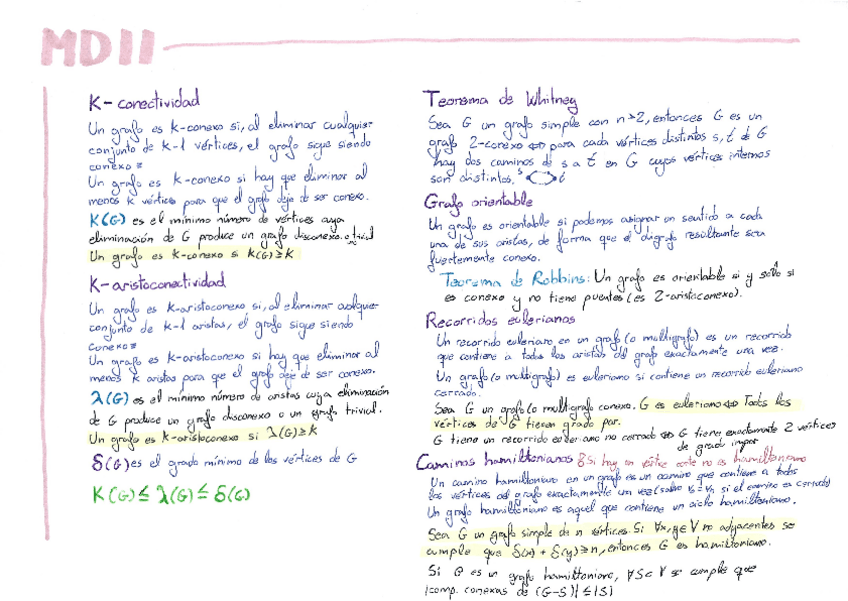 MD II
K-conectividad
Un grafo es k-conexo si, al eliminar cualquier
conjunto de k-1 vértices, el grafo sigue siendo
conexo
Un grafo es k-conexo si hay que eliminar al
menos k vértices para que el grafo deje de ser conexo.
K(G) es el mínimo número de vértices cuya
eliminación de G produce un grafo disconexo o trivial
Un grafo es k-conexo si K(G)≥K
K-aristoconectividad
Un grafo es k-aristoconexo si, al eliminar cualquier
conjunto de k-1 aristas, el grafo sigue siendo
conexo
Un grafo es k-aristoconexo si hay que eliminar al
menos k aristas para que el grafo deje de ser conexo.
λ(G) es el mínimo número de aristas cuya eliminación
de G produce un grafo disconexo o un grafo trivial.
Un grafo es k-aristoconexo si λ(G)≥K
δ(G) es el grado mínimo de los vértices de G
K(G) ≤ λ(G) ≤ δ(G)
Teorema de Whitney
Sea G un grafo simple con n>2, entonces G es un
grafo 2-conexo ⇔ para cada vértices distintos s, t de G
hay dos caminos de s a t en G cuyos vértices internos
son distintos. s t
Grafo orientable
Un grafo es orientable si podemos asignar un sentido a cada
una de sus aristas, de forma que el digrafo resultante sea
fuertemente conexo.
Teorema de Robbins: Un grafo es orientable si y sólo si
es conexo y no tiene puentes (es 2-aristoconexo).
Recorridos eulerianos
Un recorrido euleriano en un grafo (o multigrafo) es un recorrido
que contiene a todas las aristas del grafo exactamente una vez.
Un grafo (o multigrafo) es euleriano si contiene un recorrido euleriano
cerrado.
Sea G un grafo (o multigrafo conexo. G es euleriano ⇔ Todos los
vértices de G tienen grado par.
G tiene un recorrido euleriano no cerrado ⇔ G tiene exactamente 2 vértices
de grado impar
Caminos hamiltonianos Si hay un vértice corte no es hamiltoniano
Un camino hamiltoniano en un grafo es un camino que contiene a todos
los vértices del grafo exactamente una vez (salvo v₀=vₙ, si el camino es cerrado)
Un grafo hamiltoniano es aquel que contiene un ciclo hamiltoniano.
Sea G un grafo simple de n vértices. Si ∀x,y∈V no adjacentes se
cumple que δ(x) + δ(y) ≥ n, entonces G es hamiltoniano.
Si G es un grafo hamiltoniano, ∀S⊂V se cumple que
|comp. conexas de (G-S)| ≤ |S|